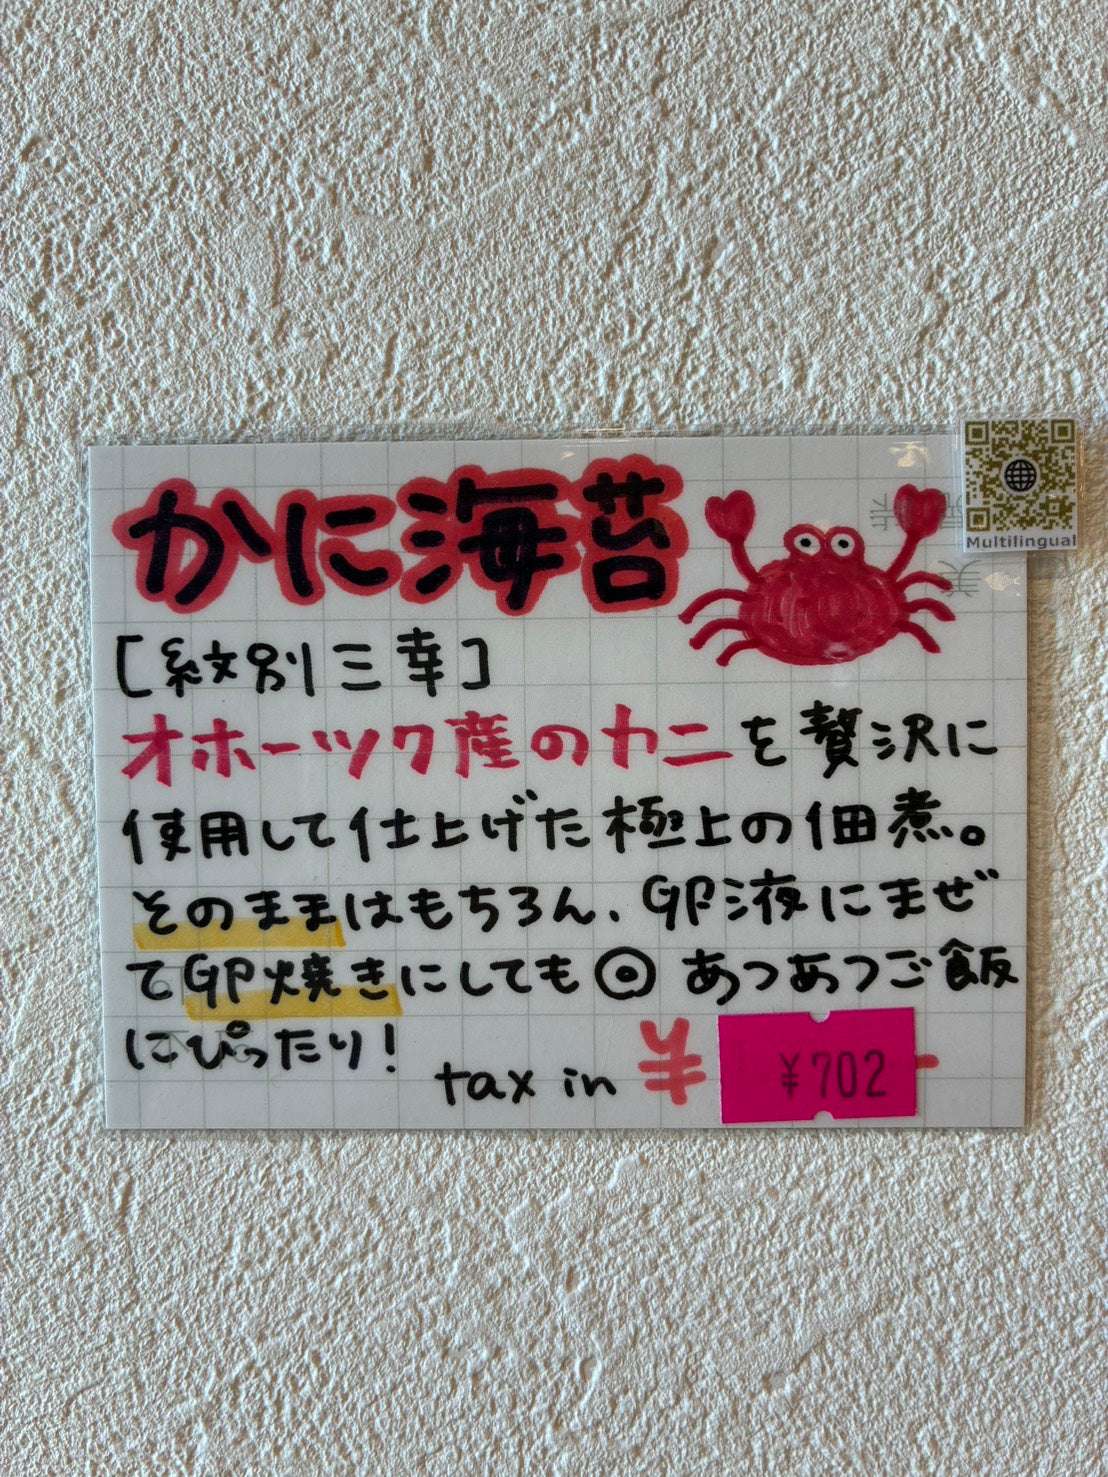 かに海苔
[紋別三幸]
オホーツク産のカニを贅沢に
使用して仕上げた極上の佃煮。
そのままはもちろん、卵液にまぜ
て卵焼きにしても◎ あつあつご飯
にぴったり!
tax in ¥ ¥702
Multilingual